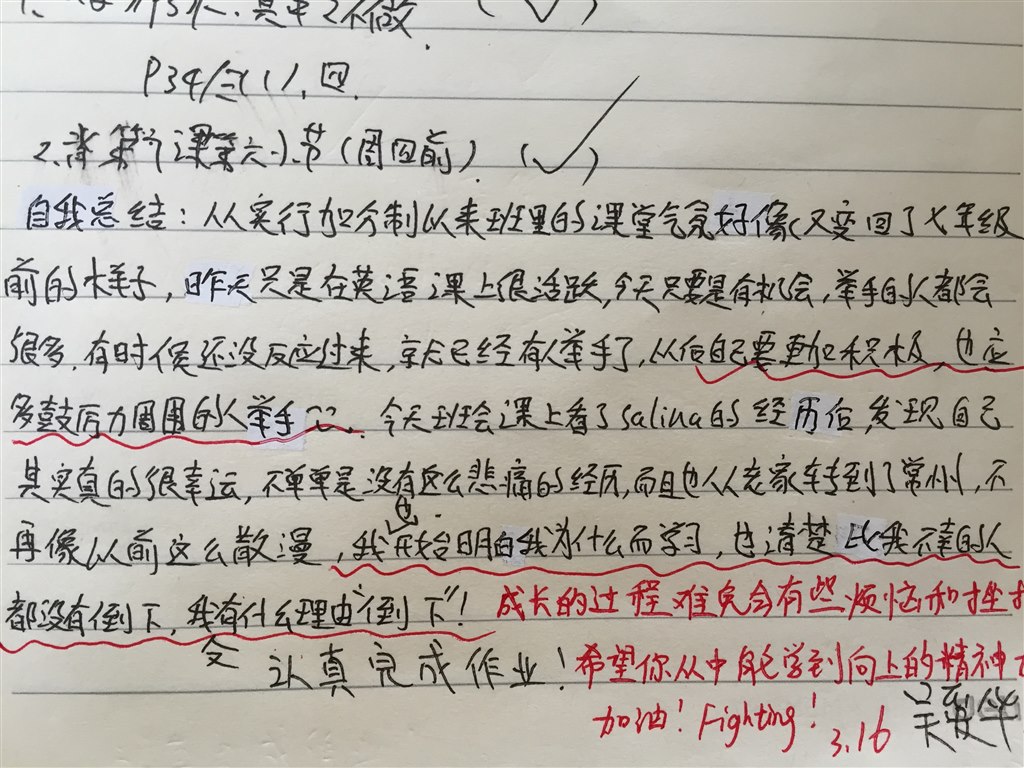 其中2不做.
P34/三(1).回.
2.背第个课第六小节(周四前).(✓)
自我总结:从实行加分制以来班里的课堂气氛好像又变回了七年级
前的样子,昨天只是在英语课上很活跃,今天只要是有机会,举手的人都会
很多.有时候还没反应过来,就已经有人举手了,以后自己要更加积极,也应
多鼓厉力周围的人举手.今天班会课上看了Salina的经历后,发现自己
其实真的很幸运,不单单是没有这么悲痛的经历,而且也从老家转到了常州,不
再像以前这么散漫,我也开始明白我为什么而学习,也清楚比我不幸的人
都没有倒下,我有什么理由"倒下"! 成长的过程难免会有些烦恼和挫折
会认真完成作业! 希望你从中能学到向上的精神
加油!Fighting! 3.16